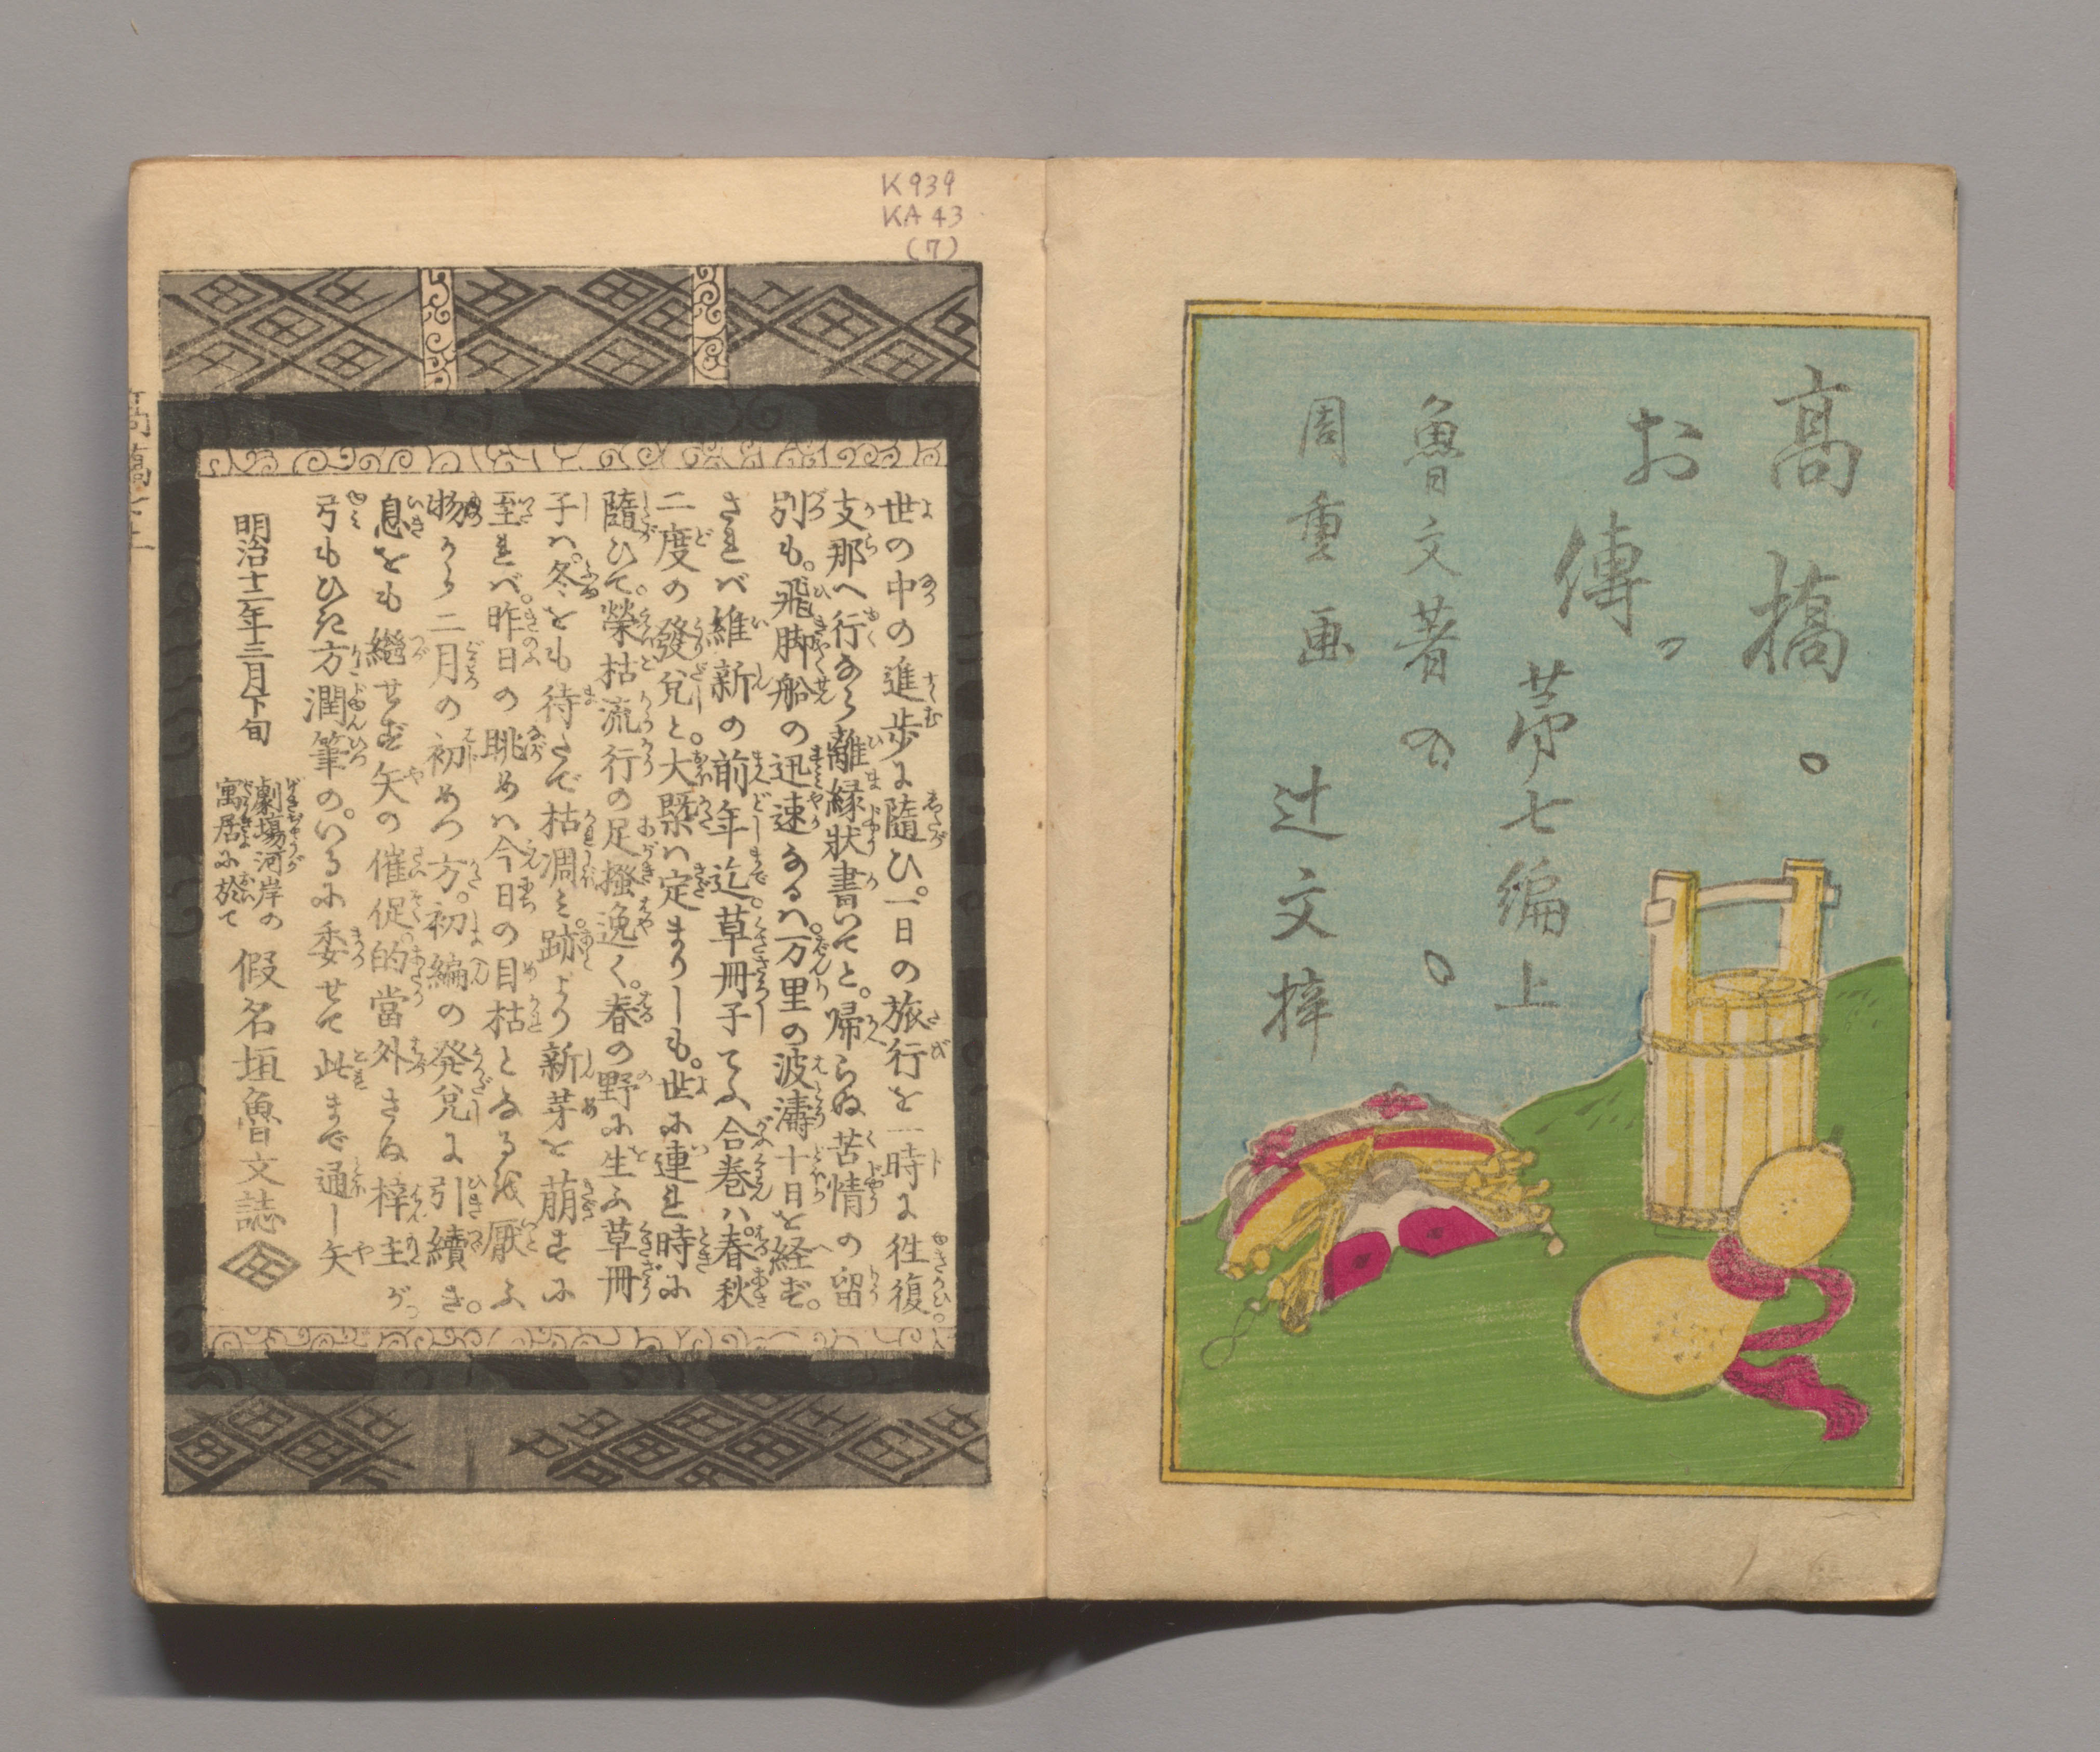 高橋。
お傳。
第七編上
魯文著の。
周重画
辻文梓
K939
KA43
(7)
世の中の進歩に隨ひ。一日の旅行を一時に徃復。
支那へ行なら離縁状書いてと。帰らぬ苦情の留
別も。飛脚船の迅速なるハ。万里の波濤十日を経ず。
されバ維新の前年迄。草冊子てふ合巻ハ。春秋
二度の發兌と。大概ハ定まりしも。世に連れ時に
隨ひて。榮枯流行の足掻逸く。春の野に生ふ草冊
子ハ。冬をも待たで枯凋ミ。跡より新芽を萠すに
至れバ。昨日の眺めハ今日の目枯となるを厭ふ
物から二月の初めつ方。初編の発兌に引續き。
息をも繼せず矢の催促。的當外さぬ梓主が
弓もひた方潤筆の。いるに委せて此まで通し矢
明治十二年三月下旬
劇場河岸の
寓居に於て
假名垣魯文誌